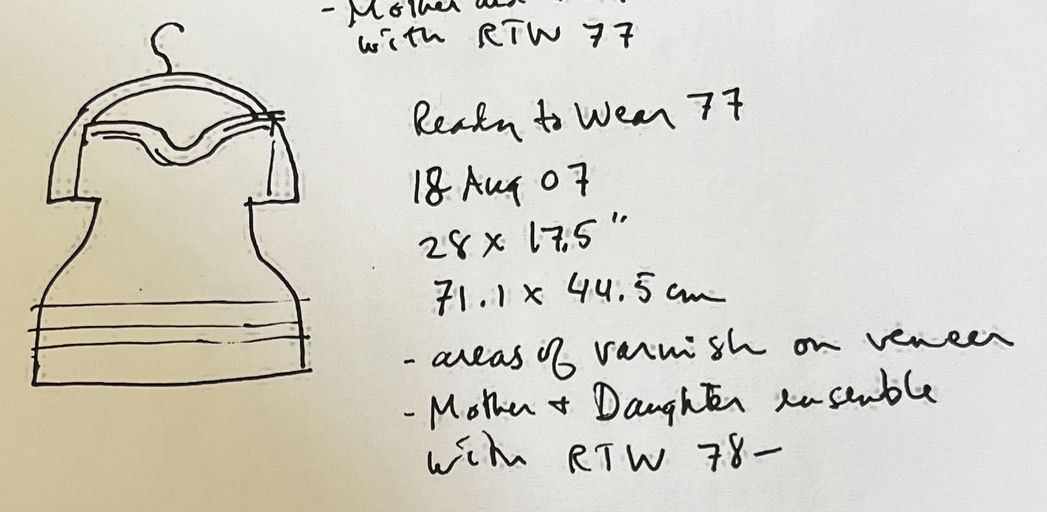 - Mother
with RTW 77
Ready to Wear 77
18 Aug 07
28 x 17.5"
71.1 x 44.5 cm
- areas of varnish on veneer
- Mother + Daughter ensemble
with RTW 78-